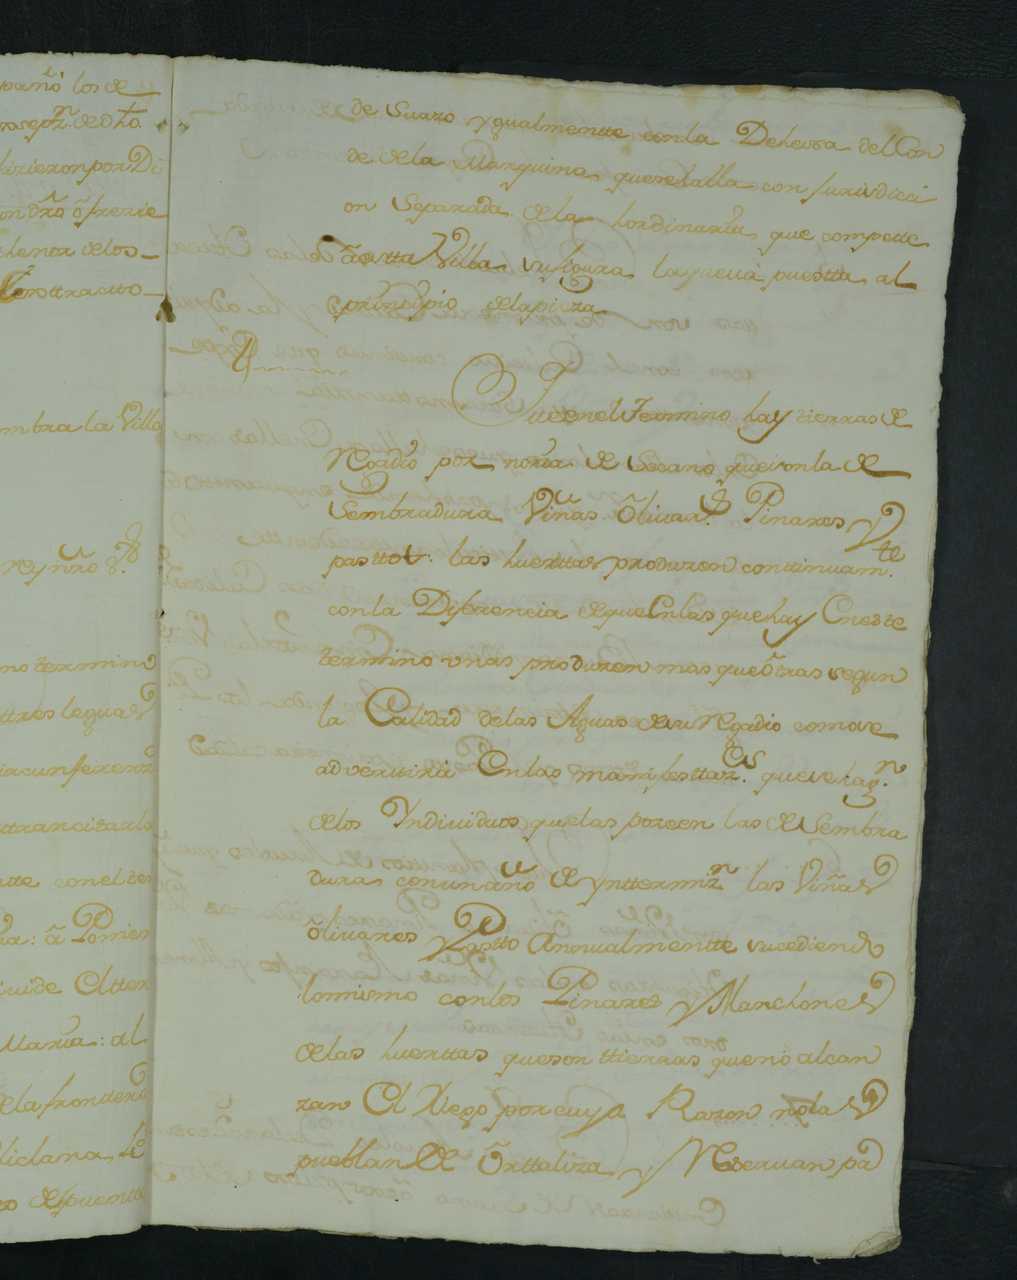 pano los de
de dho
hizieron por Di
thenor de los
Conttractto
mbra la Villa
mo termino
ttres leguas
zircunferenz
conel ter
a Ponien
Maria: al
de la frontera
Chiclana, le
de Suazo ygualmentte conla Dehessa del Con
de de la Marquina que se halla con Jurisdici
on Separada de la hordinaria que compette
a estta Villa su figura la que va puestta al
prinzipio de la pieza
4
Que en el Termino hay tierras de
Regadio por noria de Secano que son la de
Sembradura Viñas Olivar.s Pinares y
pasttos. las huerttas produzen continuam.te
con la Diferencia de que En las que hay En este
termino unas produzen mas que otras segun
la Calidad de las Aguas de su Regadio como se
adverttira En las manifesttaz.es que se hag.n
de los Yndividuos que las poseen las de Sembra
duras con un año de ynttermiz.n las Viñas
Olivares y Pastto Annualmentte sucediendo
lo mismo con los Pinares y Manchones
de las huerttas que son ttierras que no alcan
zan El Riego por cuya Razon no las
pueblan de Orttaliza y Reservan pa